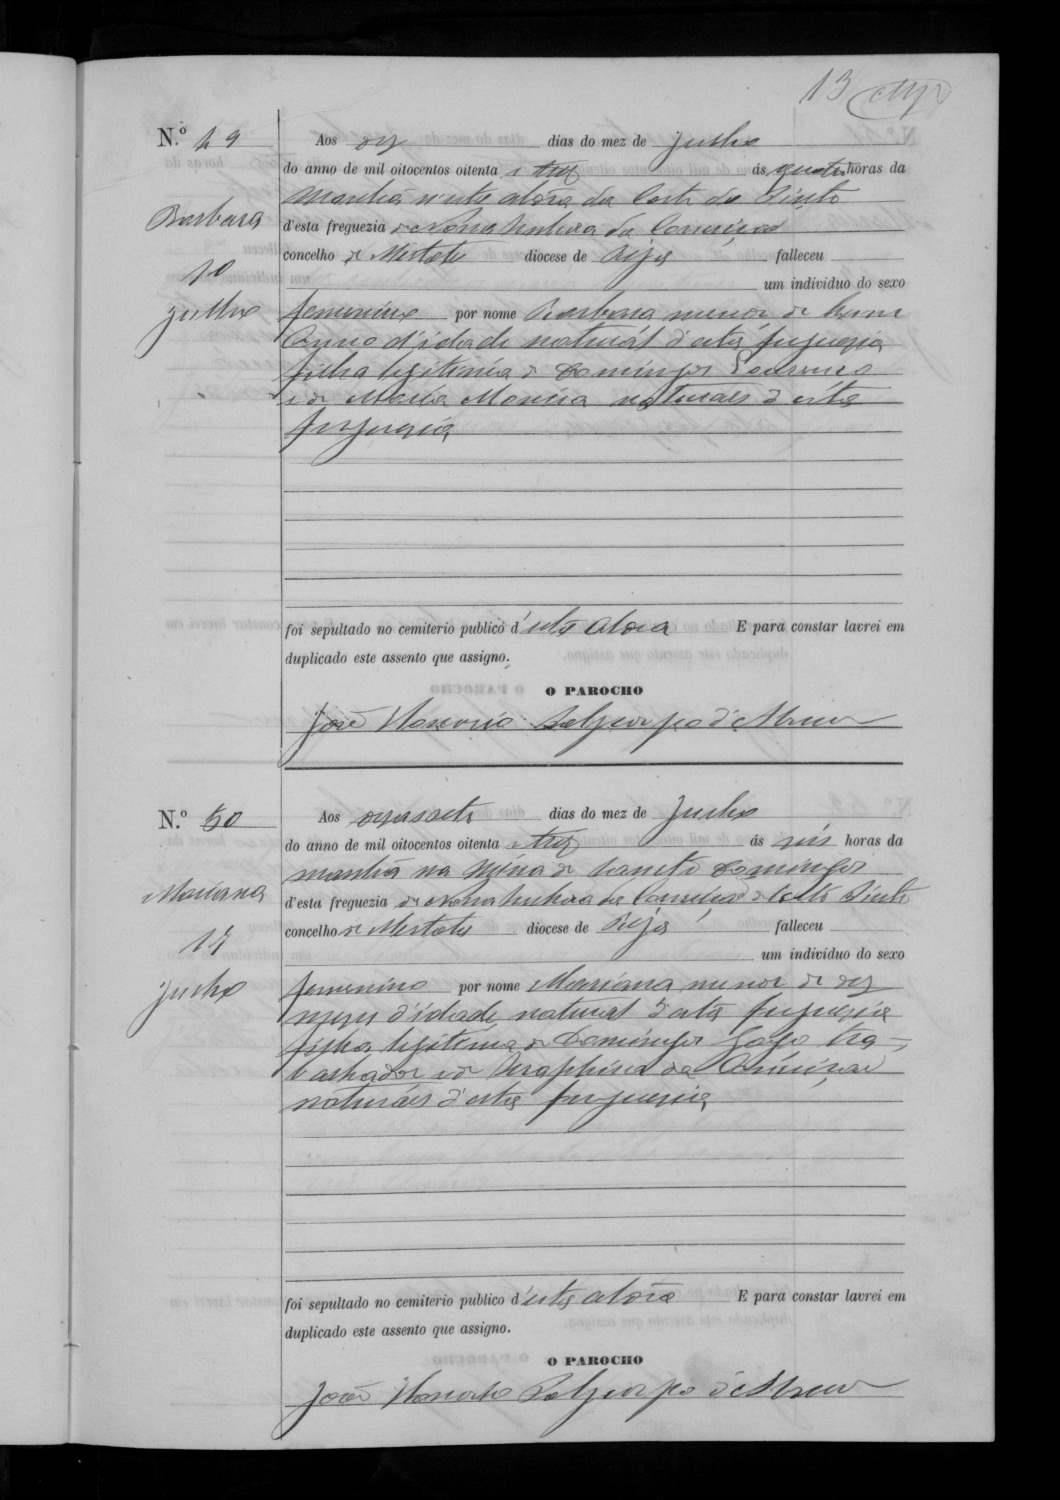 13
N.º 49
Aos dez dias do mez de Julho
do anno de mil oitocentos oitenta e trez ás quatro horas da
manhã n'esta aldêa da Corte do Pinto
Barbara
d'esta freguezia de Nossa Senhora da Conceição
concelho de Mertola diocese de Beja falleceu
10
um individuo do sexo
Julho
femenino por nome Barbara menor de hum
Anno d'idade naturál d'esta freguezia
filha legitima de Domingos Lourenço
e de Maria Moreira naturaes d'esta
freguezia
foi sepultado no cemiterio publico d'esta aldea E para constar lavrei em
duplicado este assento que assigno.
O PAROCHO
José d'Abreu
N.º 50
Aos dezasete dias do mez de Julho
do anno de mil oitocentos oitenta e trez ás seis horas da
manhã na Mina de Sancto Domingos
Mariana
d'esta freguezia de Nossa Senhora da Conceição de Corte Pinto
concelho de Mertola diocese de Beja falleceu
17
um individuo do sexo
Julho
femenino por nome Mariana menor de dez
mezes d'idade natural d'esta freguezia
filha legitima de Domingos Gago tra-
balhador e de Seraphina da Conceição
naturáes d'esta freguezia
foi sepultado no cemiterio publico d'esta aldêa E para constar lavrei em
duplicado este assento que assigno.
O PAROCHO
José d'Abreu